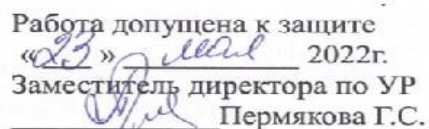 Работа допущена к защите
«23» мая 2022г.
Заместитель директора по УР
Пермякова Г.С.